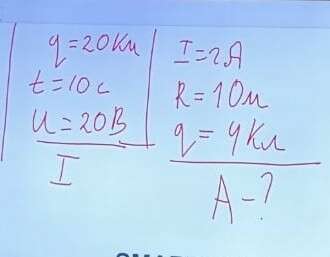 q = 20 Кл
t = 10 с
U = 20 В
I
I = 2 A
R = 1 Ом
q = 4 Кл
A - ?